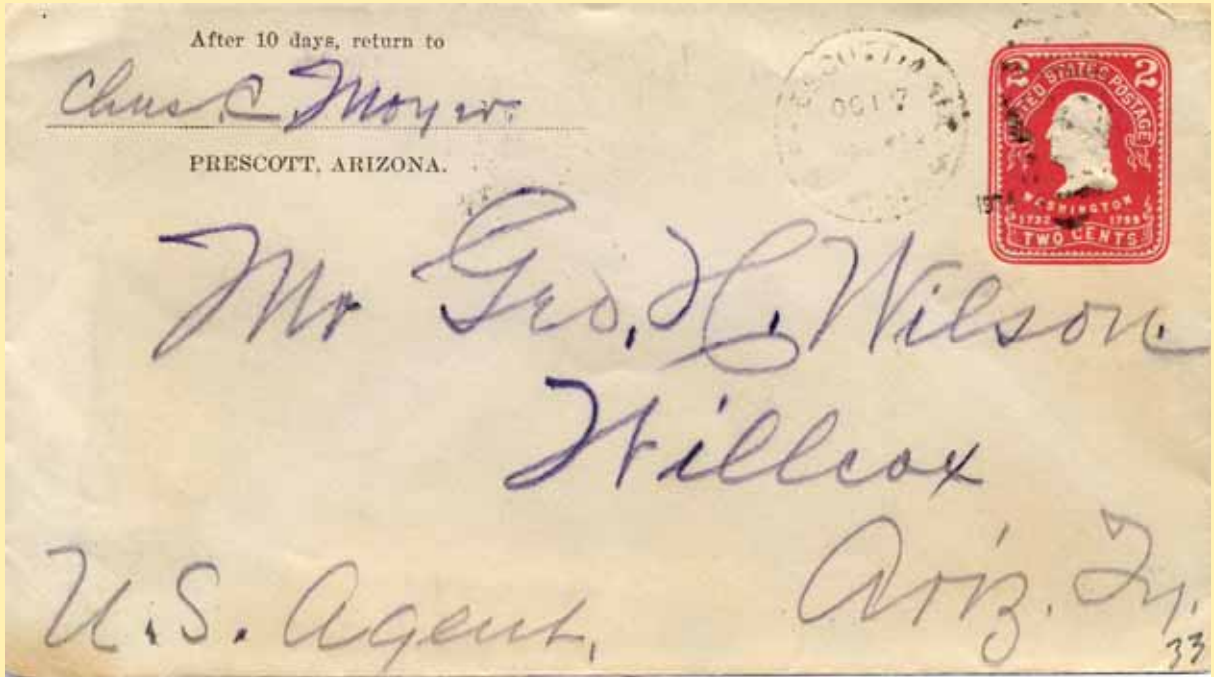 After 10 days, return to
Chas. C. Moyer.
PRESCOTT, ARIZONA.
OCT 7
2 2
UNITED STATES POSTAGE
WASHINGTON
1732 1799
TWO CENTS
Mr Geo. H. Wilson.
Willcox
Ariz. Ty.
U.S. Agent,
33